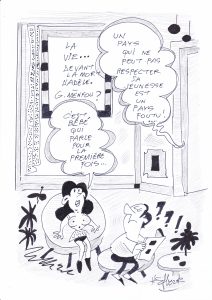 LA
VIE...
DEVANT
LA MORT
NADÈGE.
G. MENFOU?
UN
PAYS
QUI NE
PEUT PAS
RESPECTER
SA
JEUNESSE
EST
UN PAYS
FOUTU!
C'EST
BÉBÉ
QUI
PARLE
POUR
LA
PREMIÈRE
FOIS...
???!